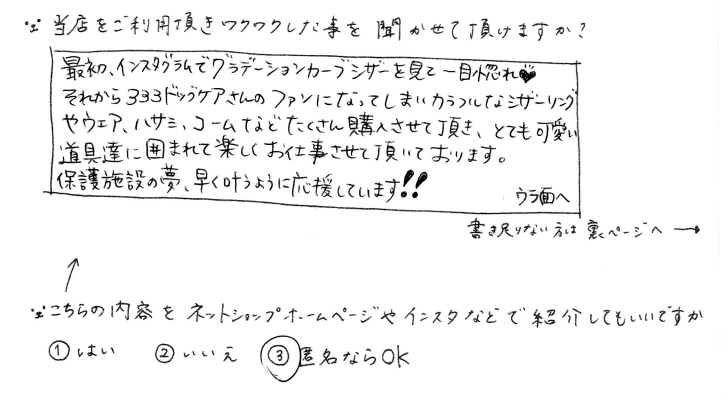 当店をご利用頂きワクワクした事を聞かせて頂けますか?
最初、インスタグラムでグラデーションカーブシザーを見て一目惚れ♥
それから333ドッグケアさんのファンになってしまいカラフルなシザーリング
やウェア、ハサミ、コームなどたくさん購入させて頂き、とても可愛い
道具達に囲まれて楽しくお仕事させて頂いております。
保護施設の夢、早く叶うように応援しています!!
ウラ面へ
書き足りない方は裏ページへ →
こちらの内容をネットショップホームページやインスタなどで紹介してもいいですか
①はい ②いいえ ③匿名ならOK